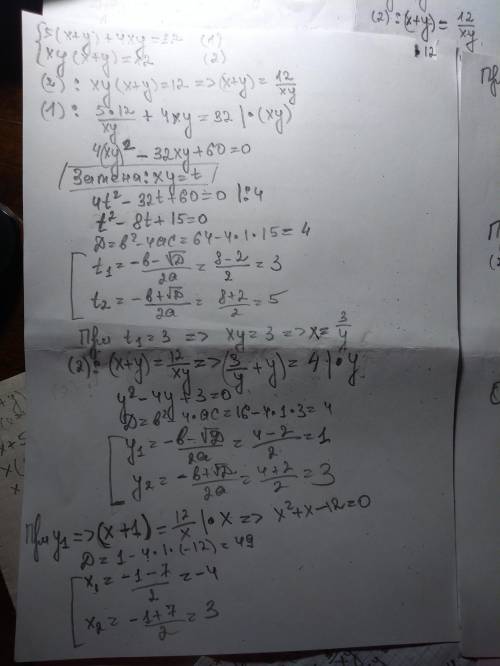 (2) : (x+y) = 12/xy
{5(x+y)+4xy=32 (1)
{xy(x+y)=12 (2)
(2) : xy(x+y)=12 => (x+y) = 12/xy
(1) : 5·12/xy + 4xy = 32 |·(xy)
4(xy)² - 32xy + 60 = 0
Замена: xy = t
4t² - 32t + 60 = 0 |:4
t² - 8t + 15 = 0
D = в² - 4ac = 64 - 4·1·15 = 4
t₁ = (-в-√D)/2a = (8-2)/2 = 3
t₂ = (-в+√D)/2a = (8+2)/2 = 5
При t₁ = 3 => xy = 3 => x = 3/y
(2) : (x+y) = 12/xy => (3/y + y) = 4 |·y
y² - 4y + 3 = 0
D = в² - 4·ac = 16 - 4·1·3 = 4
y₁ = (-в-√D)/2a = (4-2)/2 = 1
y₂ = (-в+√D)/2a = (4+2)/2 = 3
При y₁ => (x+1) = 12/x |·x => x² + x - 12 = 0
D = 1 - 4·1·(-12) = 49
x₁ = (-1-7)/2 = -4
x₂ = (-1+7)/2 = 3